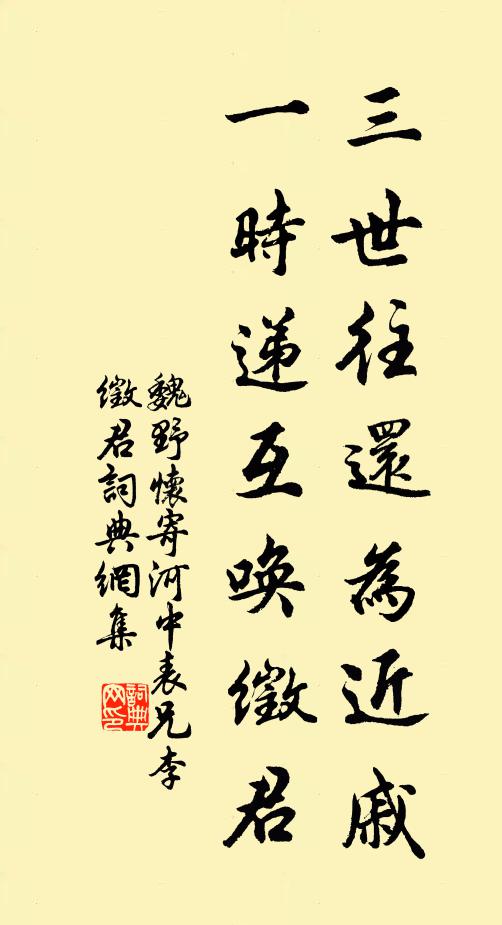 三世往還為近戚
一時遞互喚徵君
魏野懷寄河中表兄李
徵君詞典網集
詞典网印